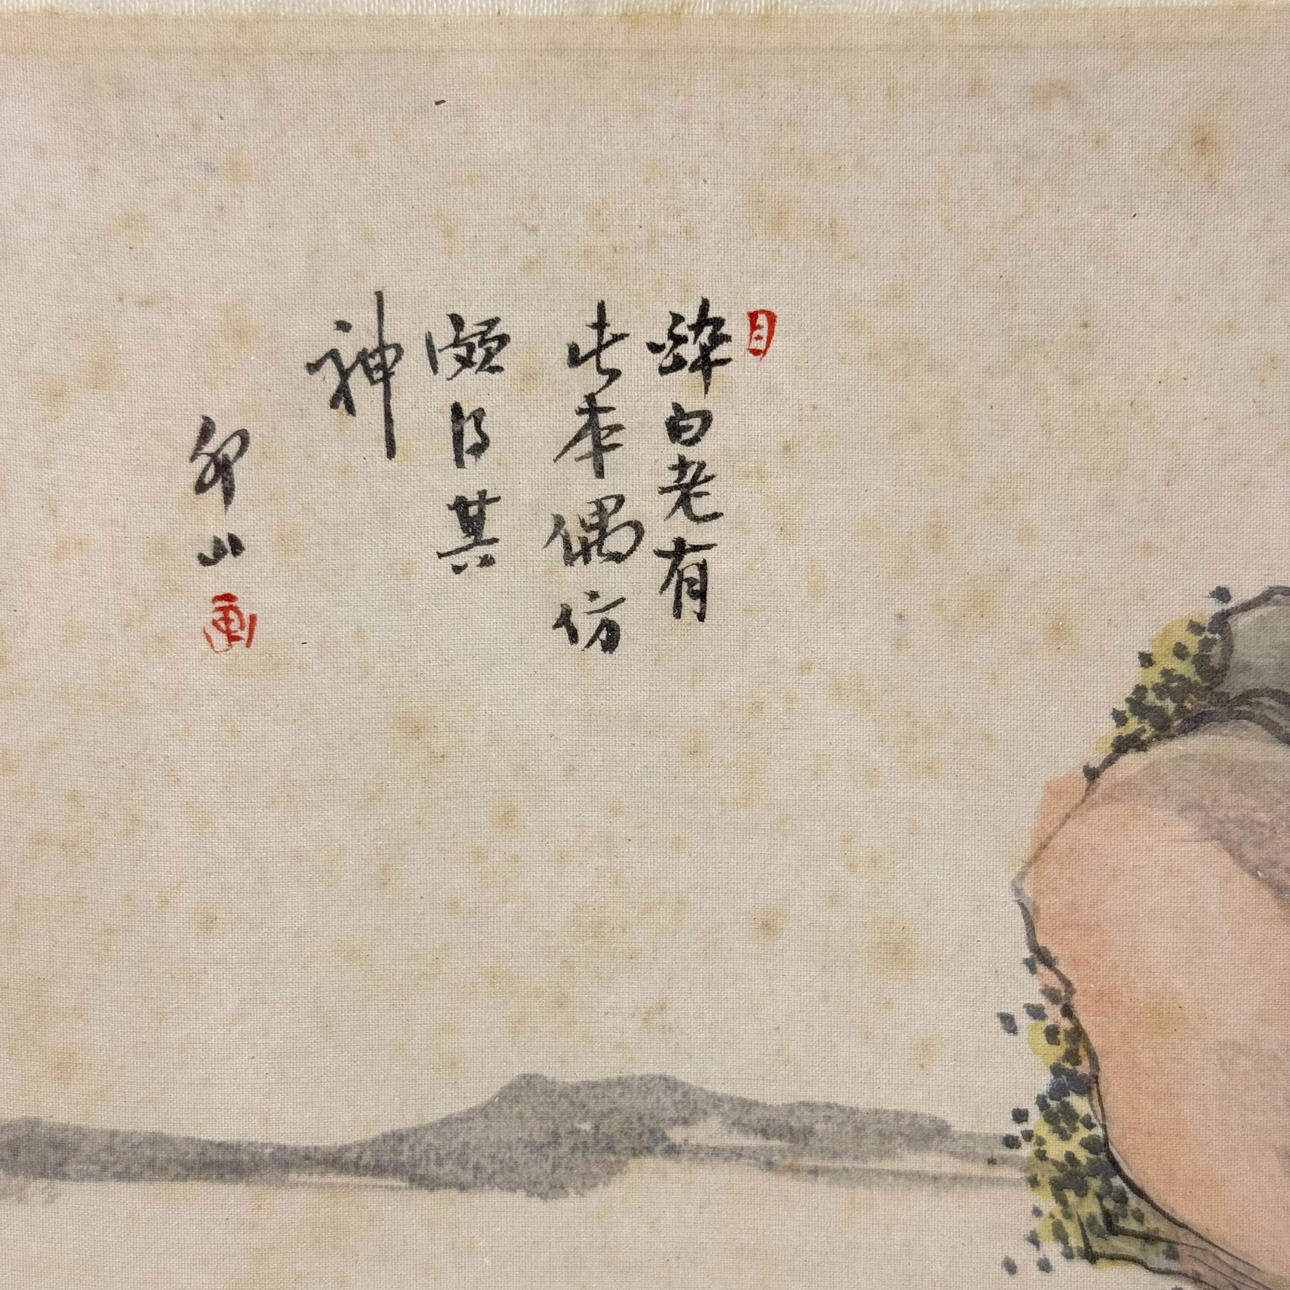 白老有
此本偶仿
頗得其
神
卯山